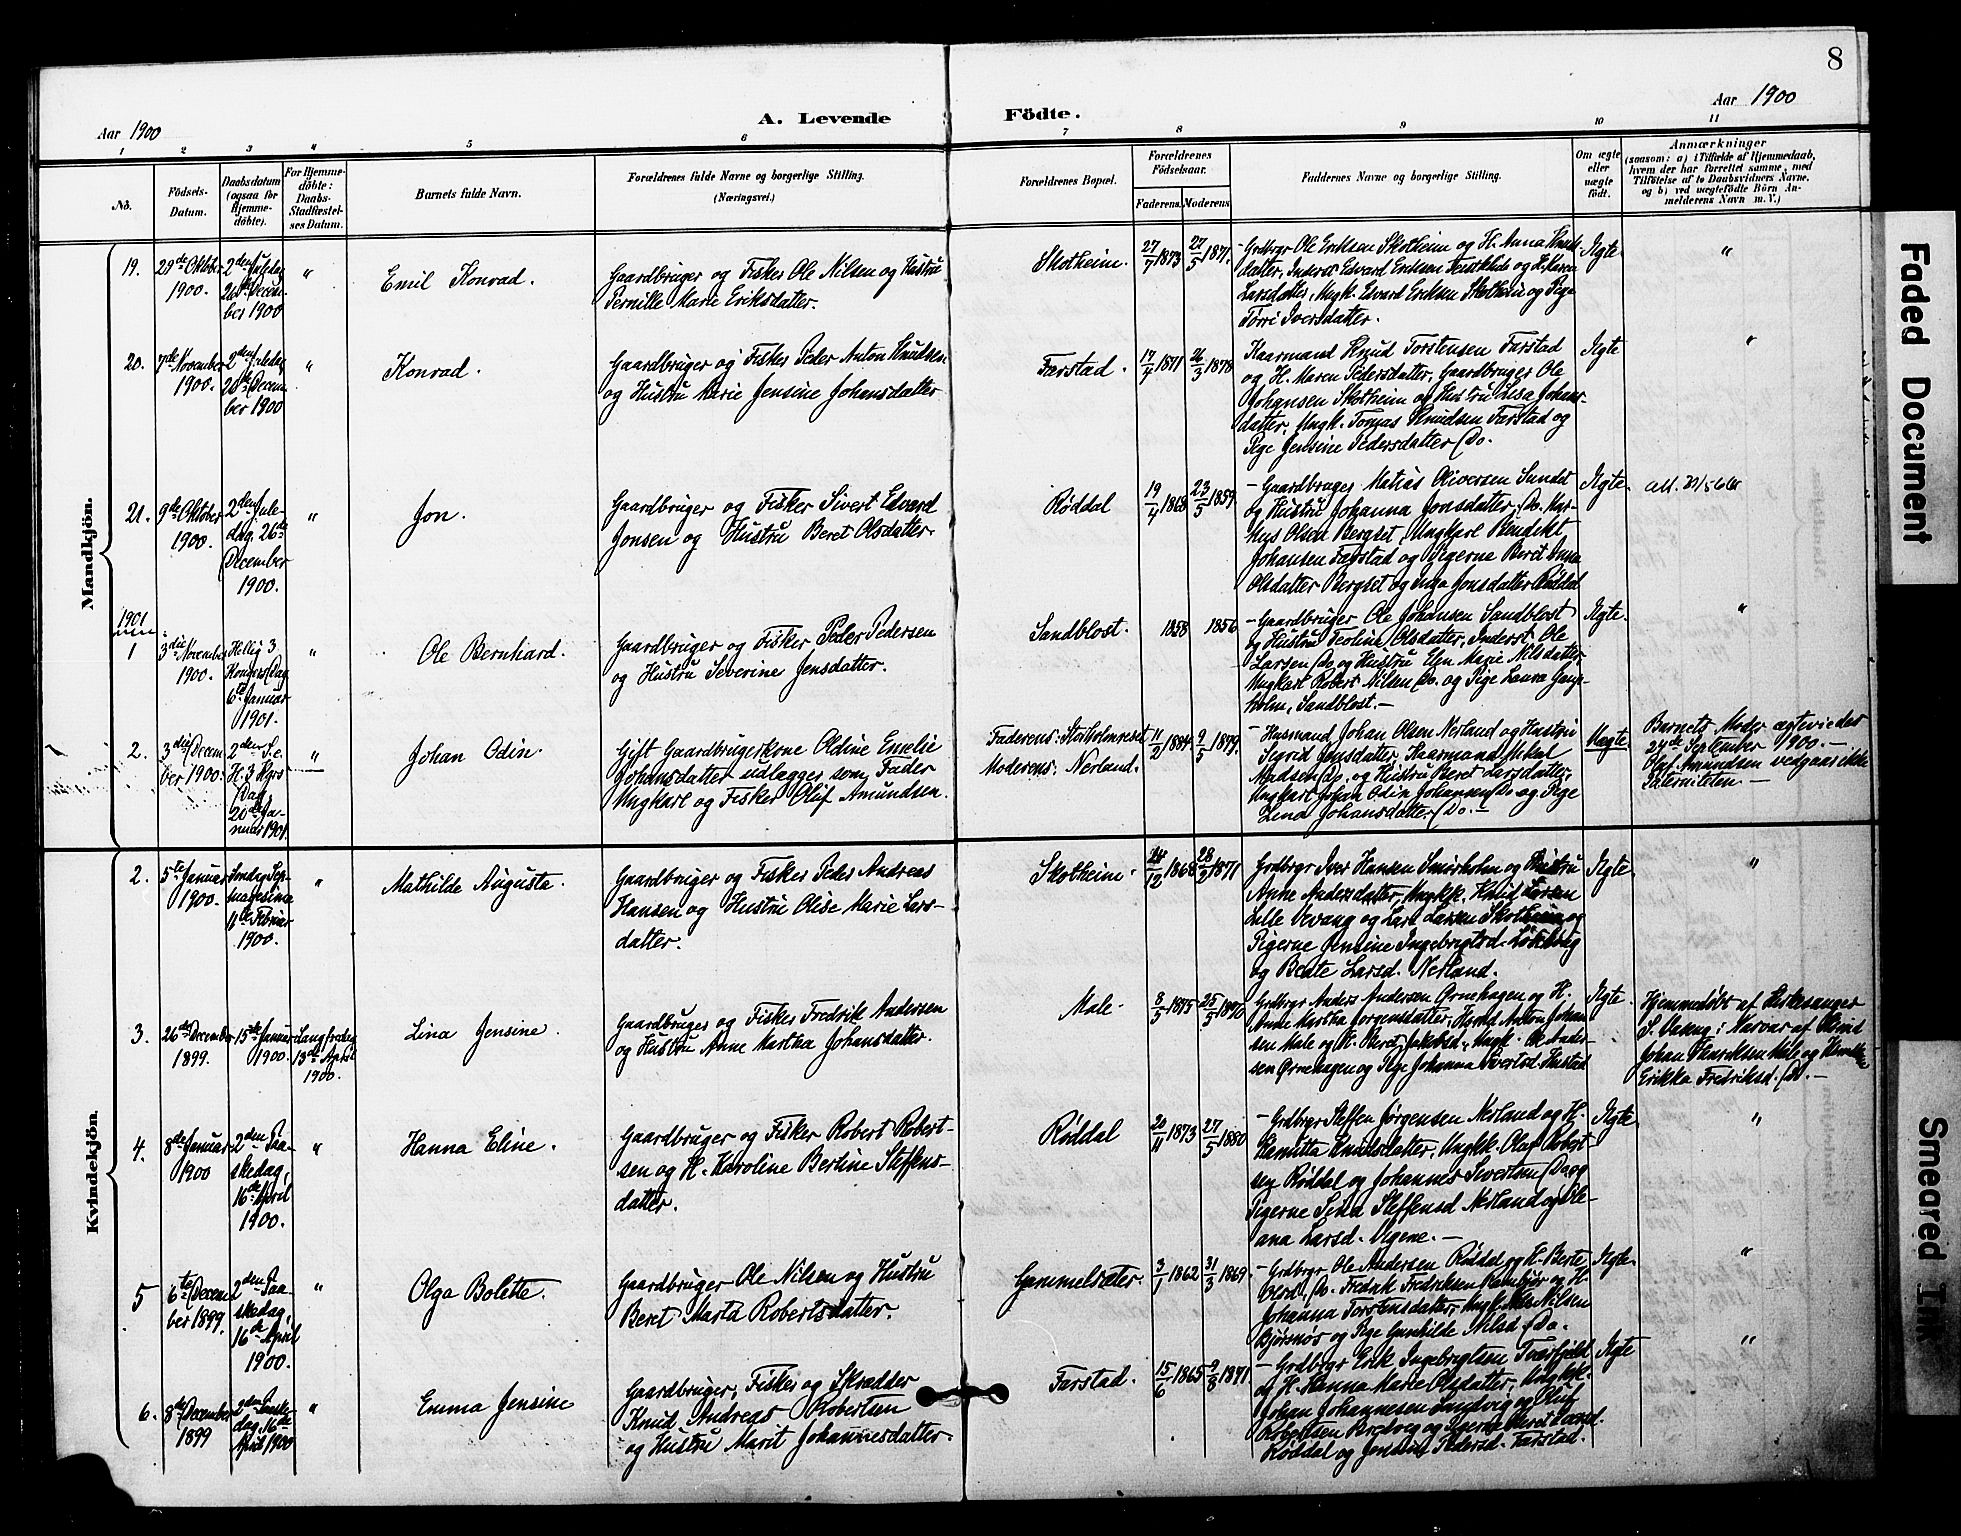 8
Aar 1900
A. Levende
Födte.
Aar 1900
1 2 3 4 5 6 7 8 9 10 11
No.
Födsels-
Datum.
Daabsdatum
(ogsaa for
Hjemme-
döbte).
For Hjemme-
döbte:
Daabs-
Stadfæstel-
ses Datum.
Barnets fulde Navn.
Forældrenes fulde Navne og borgerlige Stilling.
(Næringsvei.)
Forældrenes Bopæl.
Forældrenes
Födselsaar.
Faderens. Moderens.
Faddernes Navne og borgerlige Stilling.
Om ægte
eller
uægte
født.
Anmærkninger
(saasom: a) i Tilfælde af Hjemmedaab,
hvem der har forrettet samme, med
Tilföielse af to Daabsvidners Navne,
og b) ved uægtefödte Börn An-
melderens Navn m. V.)
Mandkjön.
19.
Oktbr
1900.
2den Juledag
26de Decem-
ber 1900
"
Emil Konrad.
Gaardbruger og Fisker Ole Nilsen og Hustru
Pernille Marie Eriksdatter.
Skotheim.
27/7 1873
27/5 1871.
- Grdbrgr Ole Eriksen Skotheim og H. Anna Knuds-
datter, Inderst Edvard Eriksen og H. Karen
Larsdatter, Ungk. Edvard Eriksen Skotheim og Pige
Tørri Iversdatter.
Ægte
"
20.
7de November
1900.
2den Juledag
26de Decem-
ber 1900
"
Konrad.
Gaardbruger og Fisker Peder Anton Knudsen
og Hustru Marie Jensine Johansdatter
Farstad.
1871
26/3 1878
Kaarmand Knud Torstensen Farstad
og H. Maren Pedersdatter, Gaardbruger Ole
Johansen Skotheim og Hustru Lisa Johans-
datter, Ungk. Tomas Knudsen Farstad og
Pige Jensine Pedersdatter Do.
Ægte
"
21.
9de Oktober
1900.
2den Jule-
dag, 26de
December
1900.
"
Jon.
Gaardbruger og Fisker Sivert Edvard
Jonsen og Hustru Beret Olsdatter.
Røddal
19/4 1868
23/5 1859
- Gaardbruger Matias Oliversen Sundet
og Hustru Johanna Jonsdatter, Do.
Olsen Bergset, Ungkarl Bendikt
Johansen Farstad og Pigerne Beret Anna
Olsdatter Bergset og Inga Jonsdatter Røddal
Ægte.
1901
1
3die November
1900.
Hellig 3
Kongers Dag
6te Januar
1901.
"
Ole Bernhard.
Gaardbruger og Fisker Peder Pedersen
og Hustru Severine Jensdatter.
Sandblost.
1858
1856
- Gaardbruger Ole Johansen Sandblost
og Hustru Olsdatter, Inderst Ole
Larsen Do og Hustru Elen Marie Nilsdatter
Ungkarl Robert Nilsen Do. og Pige Laura
holm, Sandblost. -
Ægte.
"
2.
3die Decem-
ber 1900.
2den S. e.
H. 3 Kgrs
Dag,
20de Ja-
nuar 1901.
"
Johan Odin.
Gift Gaardbrugerkone Oldine Emelie
Johansdatter udlægger som Fader
Ungkarl og Fisker Oluf Amundsen.
Faderens: Storholmneset
Moderens: Nerland.
11/2 1884
9/5 1879.
- Husmand Johan Olsen Nerland og Hustru
Sigrid Jensdatter, Kaarmand Mikal
Madsen Do. og Hustru Beret Larsdatter,
Ungkarl Johan Odin Johansen Do og Pige
Lena Johansdatter Do. -
Uægte.
Barnets Moder ægteviedes
27de September 1900. -
Oluf Amundsen vedgaar ikke
Paterniteten -
Kvindekjön.
2.
5te Januar
1900.
Søndag Sep-
tuagesima
11te Februar
1900.
"
Mathilde Augusta.
Gaardbruger og Fisker Peder Andreas
Hansen og Hustru Olise Marie Lars-
datter.
Skotheim.
1868
28/2 1871
Grdbrgr Iver Hansen Smørholm og Hustru
Anne Andersdatter, Ungkk. Knud Larsen
Lille Vevang og Lars Larsen Skotheim og
Pigerne Jensine Ingebrigtsd.
og Beate Larsd. Nerland.
Ægte.
"
3.
26de December
1899.
15de Januar
1900.
Langfredag
13de April
1900.
Lina Jensine.
Gaardbruger og Fisker Fredrik Andersen
og Hustru Anne Martha Johansdatter.
Male.
8/5 1875
25/5
Grdbrgr Anders Andersen Ørnehagen og H.
Anne Martha Jørgensdatter, Anton Johan-
sen Male og H. Beret Jakobsd., Ungk. Ole Ander-
sen Ørnehagen og Pige Johanna Sivertsd. Hustad
Ægte.
Hjemmedøbt af Kirkesanger
Johan Henriksen Male og
Erikka Fredriksd. Do. -
4.
8de Januar
1900
2den Paa-
skedag,
16de April
1900.
"
Hanna Eline.
Gaardbruger og Fisker Robert Robert-
sen og H. Karoline Bertine Steffens-
datter.
Røddal
20/11 1873
27/5 1880
- Grdbrgr Steffen Jørgensen Nerland og H.
Knudsdatter, Ungkk. Olaf Robert-
sen Røddal og Johannes Sivertsen Do og
Pigerne Lena Steffensd Nerland og Ole-
ana Larsd. -
Ægte
"
5
6te Decem-
ber 1899.
2den Paa-
skedag,
16de April
1900.
"
Olga Bolette.
Gaardbruger Ole Nilsen og Hustru
Beret Marta Robertsdatter.
Gammelsæter.
3/7 1862
31/3 1869.
- Grdbrgr Ole Andersen Røddal og H. Berte
Do. Fredrik Fredriksen og H.
Johanna Torstensdatter, Ungk. Nils Nilsen
Bjørsnøs og Pige Gunhilde Nilsd. Do.
Ægte.
"
6.
8de December
1899
2den Paaske-
dag, 16de
April 1900
"
Emma Jensine
Gaardbruger, Fisker og Skrædder
Knud Andreas Robertsen
og Hustru Marit Johannesdatter.
Farstad.
15/6 1865
9/8 1871
- Grdbrgr Erik Ingebrigtsen Tverfjeld
og H. Hanna Marie Olsdatter, Ungkk.
Johan Johannesen Sandvig og Oluf
Robertsen Bredveg og Pigerne Beret Larsd.
Røddal og Jensine Pedersd. Farstad.
Ægte
"
Faded Document
Smeared Ink